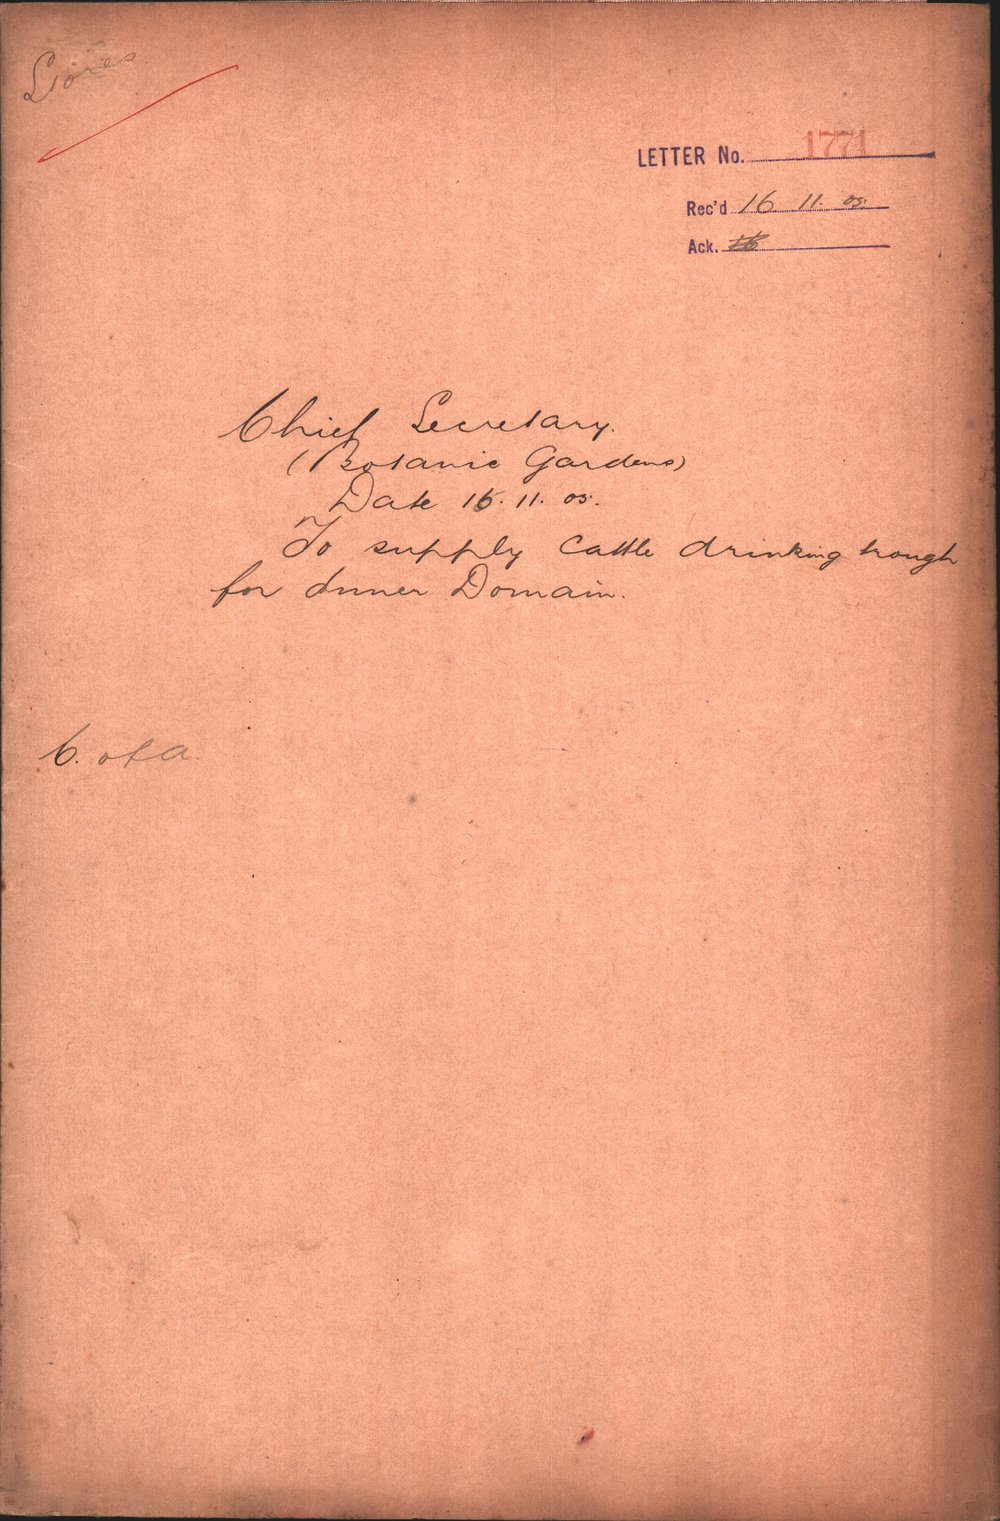 Stores
LETTER No. 1771
Rec'd 16 11. 05.
Ack. 16
Chief Secretary.
(Botanic Gardens)
Date 16. 11. 05.
To supply cattle drinking trough
for Inner Domain.
C. of A.